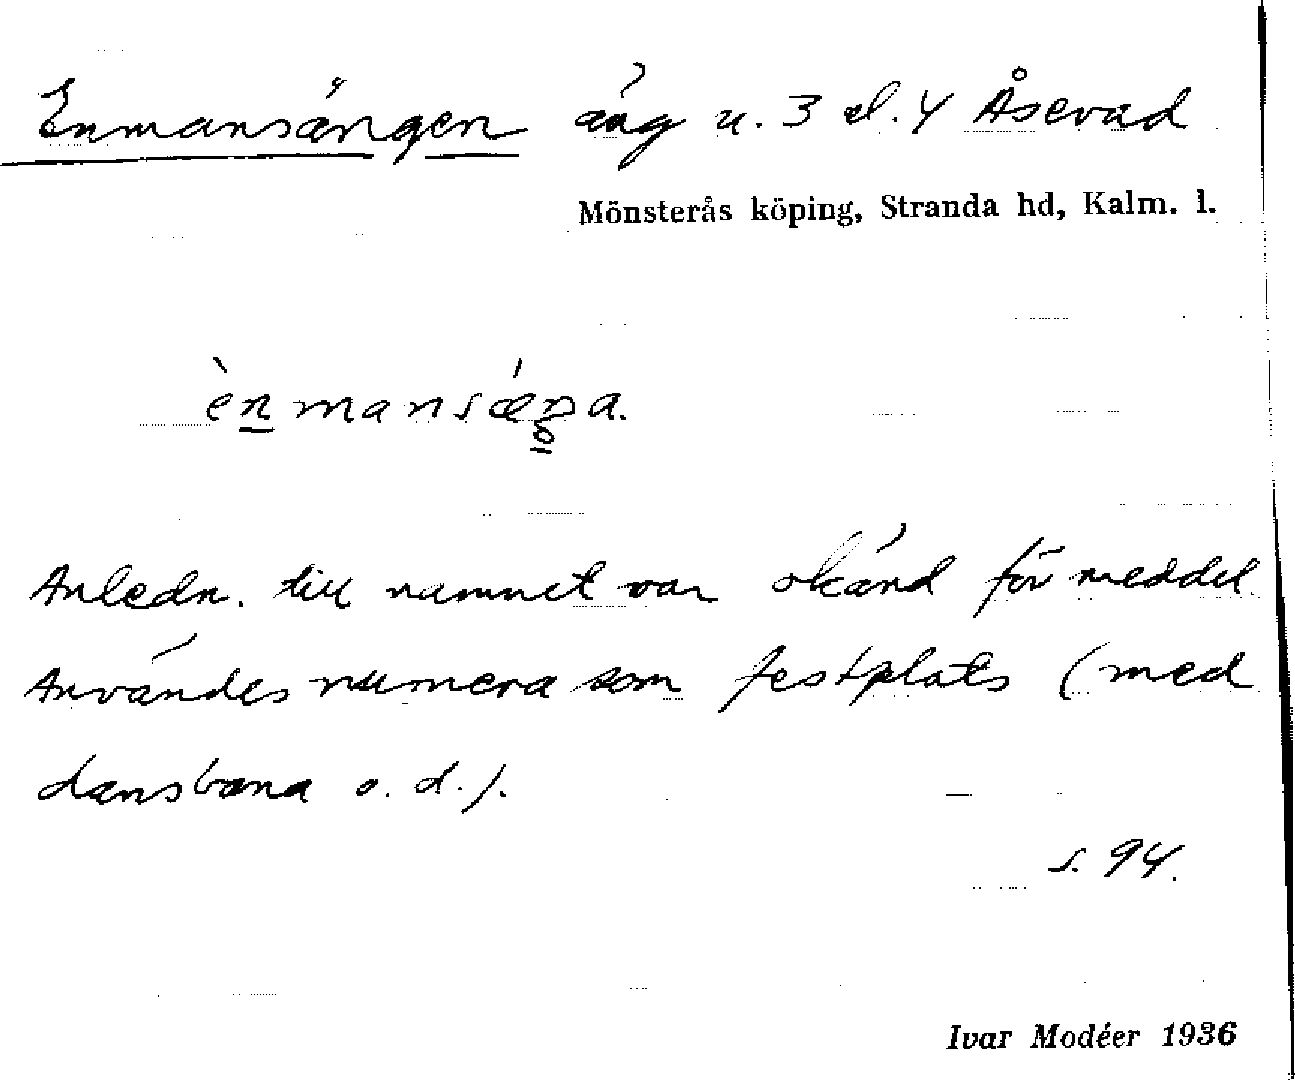 Enmansängen äng u. 3 el. 4 Åsevad
Mönsterås köping, Stranda hd, Kalm. l.
ènmansǽŋa.
Anledn. till namnet var okänd för meddel.
Användes numera som festplats (med
dansbana o. d.).
s. 94.
Ivar Modéer 1936